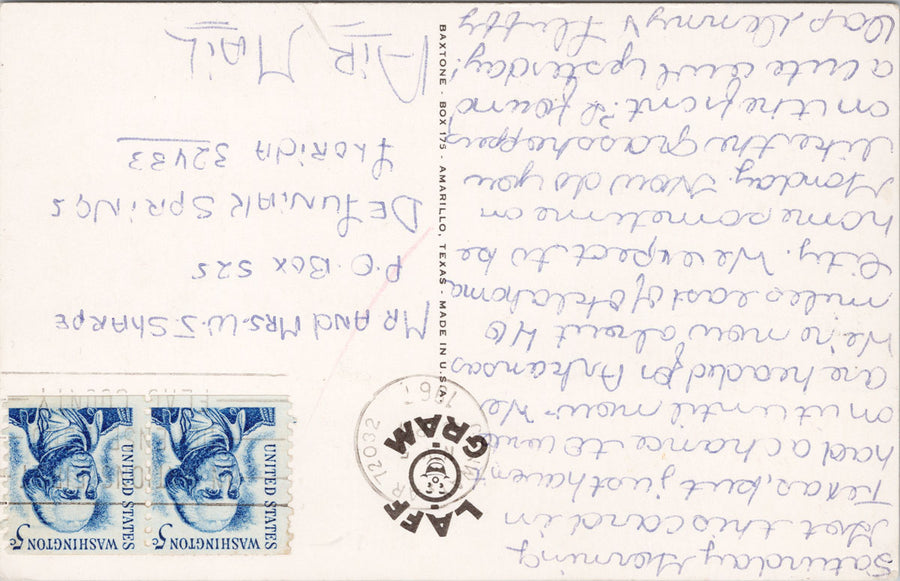 Saturday Morning
I got this card in
Texas, but just haven't
had a chance to write
on it until now. We
are headed for Arkansas
We're now about 40
miles east of Oklahoma
City. We expect to be
home sometime on
Monday. How do you
like the grasshopper
on the front. I found
a cute owl yesterday!
Cap, Jenny & Fluffy
LAFF
GRAM
BAXTONE · BOX 175 · AMARILLO, TEXAS · MADE IN U.S.A.
AR 72032
1967
UNITED STATES
WASHINGTON 5c
UNITED STATES
WASHINGTON 5c
Mr and Mrs. W. J. Sharpe
P.O. Box 525
De Funiak Springs
Florida 32433
Air Mail